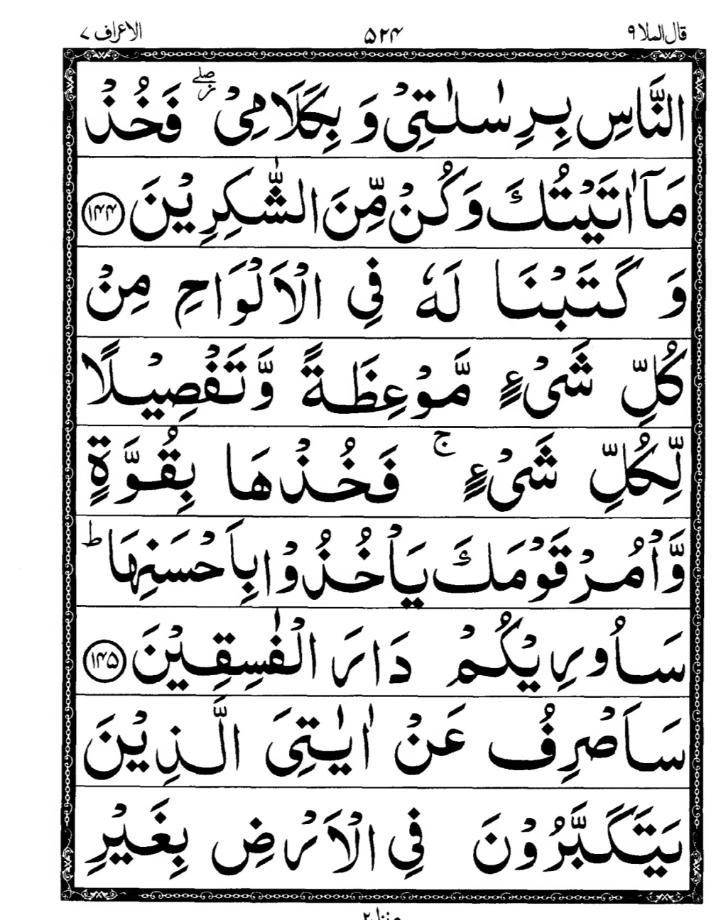 قال الملا ۹ ۵۲۴ الاعراف ۷
النَّاسِ بِرِسٰلٰتِیْ وَ بِكَلَامِیْ ۖ فَخُذْ
مَاۤ اٰتَیْتُكَ وَكُنْ مِّنَ الشّٰكِرِیْنَ ﴿۱۴۴﴾
وَ كَتَبْنَا لَهٗ فِی الْاَلْوَاحِ مِنْ
كُلِّ شَیْءٍ مَّوْعِظَةً وَّ تَفْصِیْلًا
لِّكُلِّ شَیْءٍ ۚ فَخُذْهَا بِقُوَّةٍ
وَّاْمُرْ قَوْمَكَ یَاْخُذُوْا بِاَحْسَنِهَا ؕ
سَاُورِیْكُمْ دَارَ الْفٰسِقِیْنَ ﴿۱۴۵﴾
سَاَصْرِفُ عَنْ اٰیٰتِیَ الَّذِیْنَ
یَتَكَبَّرُوْنَ فِی الْاَرْضِ بِغَیْرِ
منزل ۲